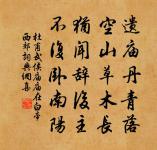 遗庙丹青落
空山草木长
犹闻辞后主
不复卧南阳
杜甫武侯庙庙在白帝
西郊词典网书